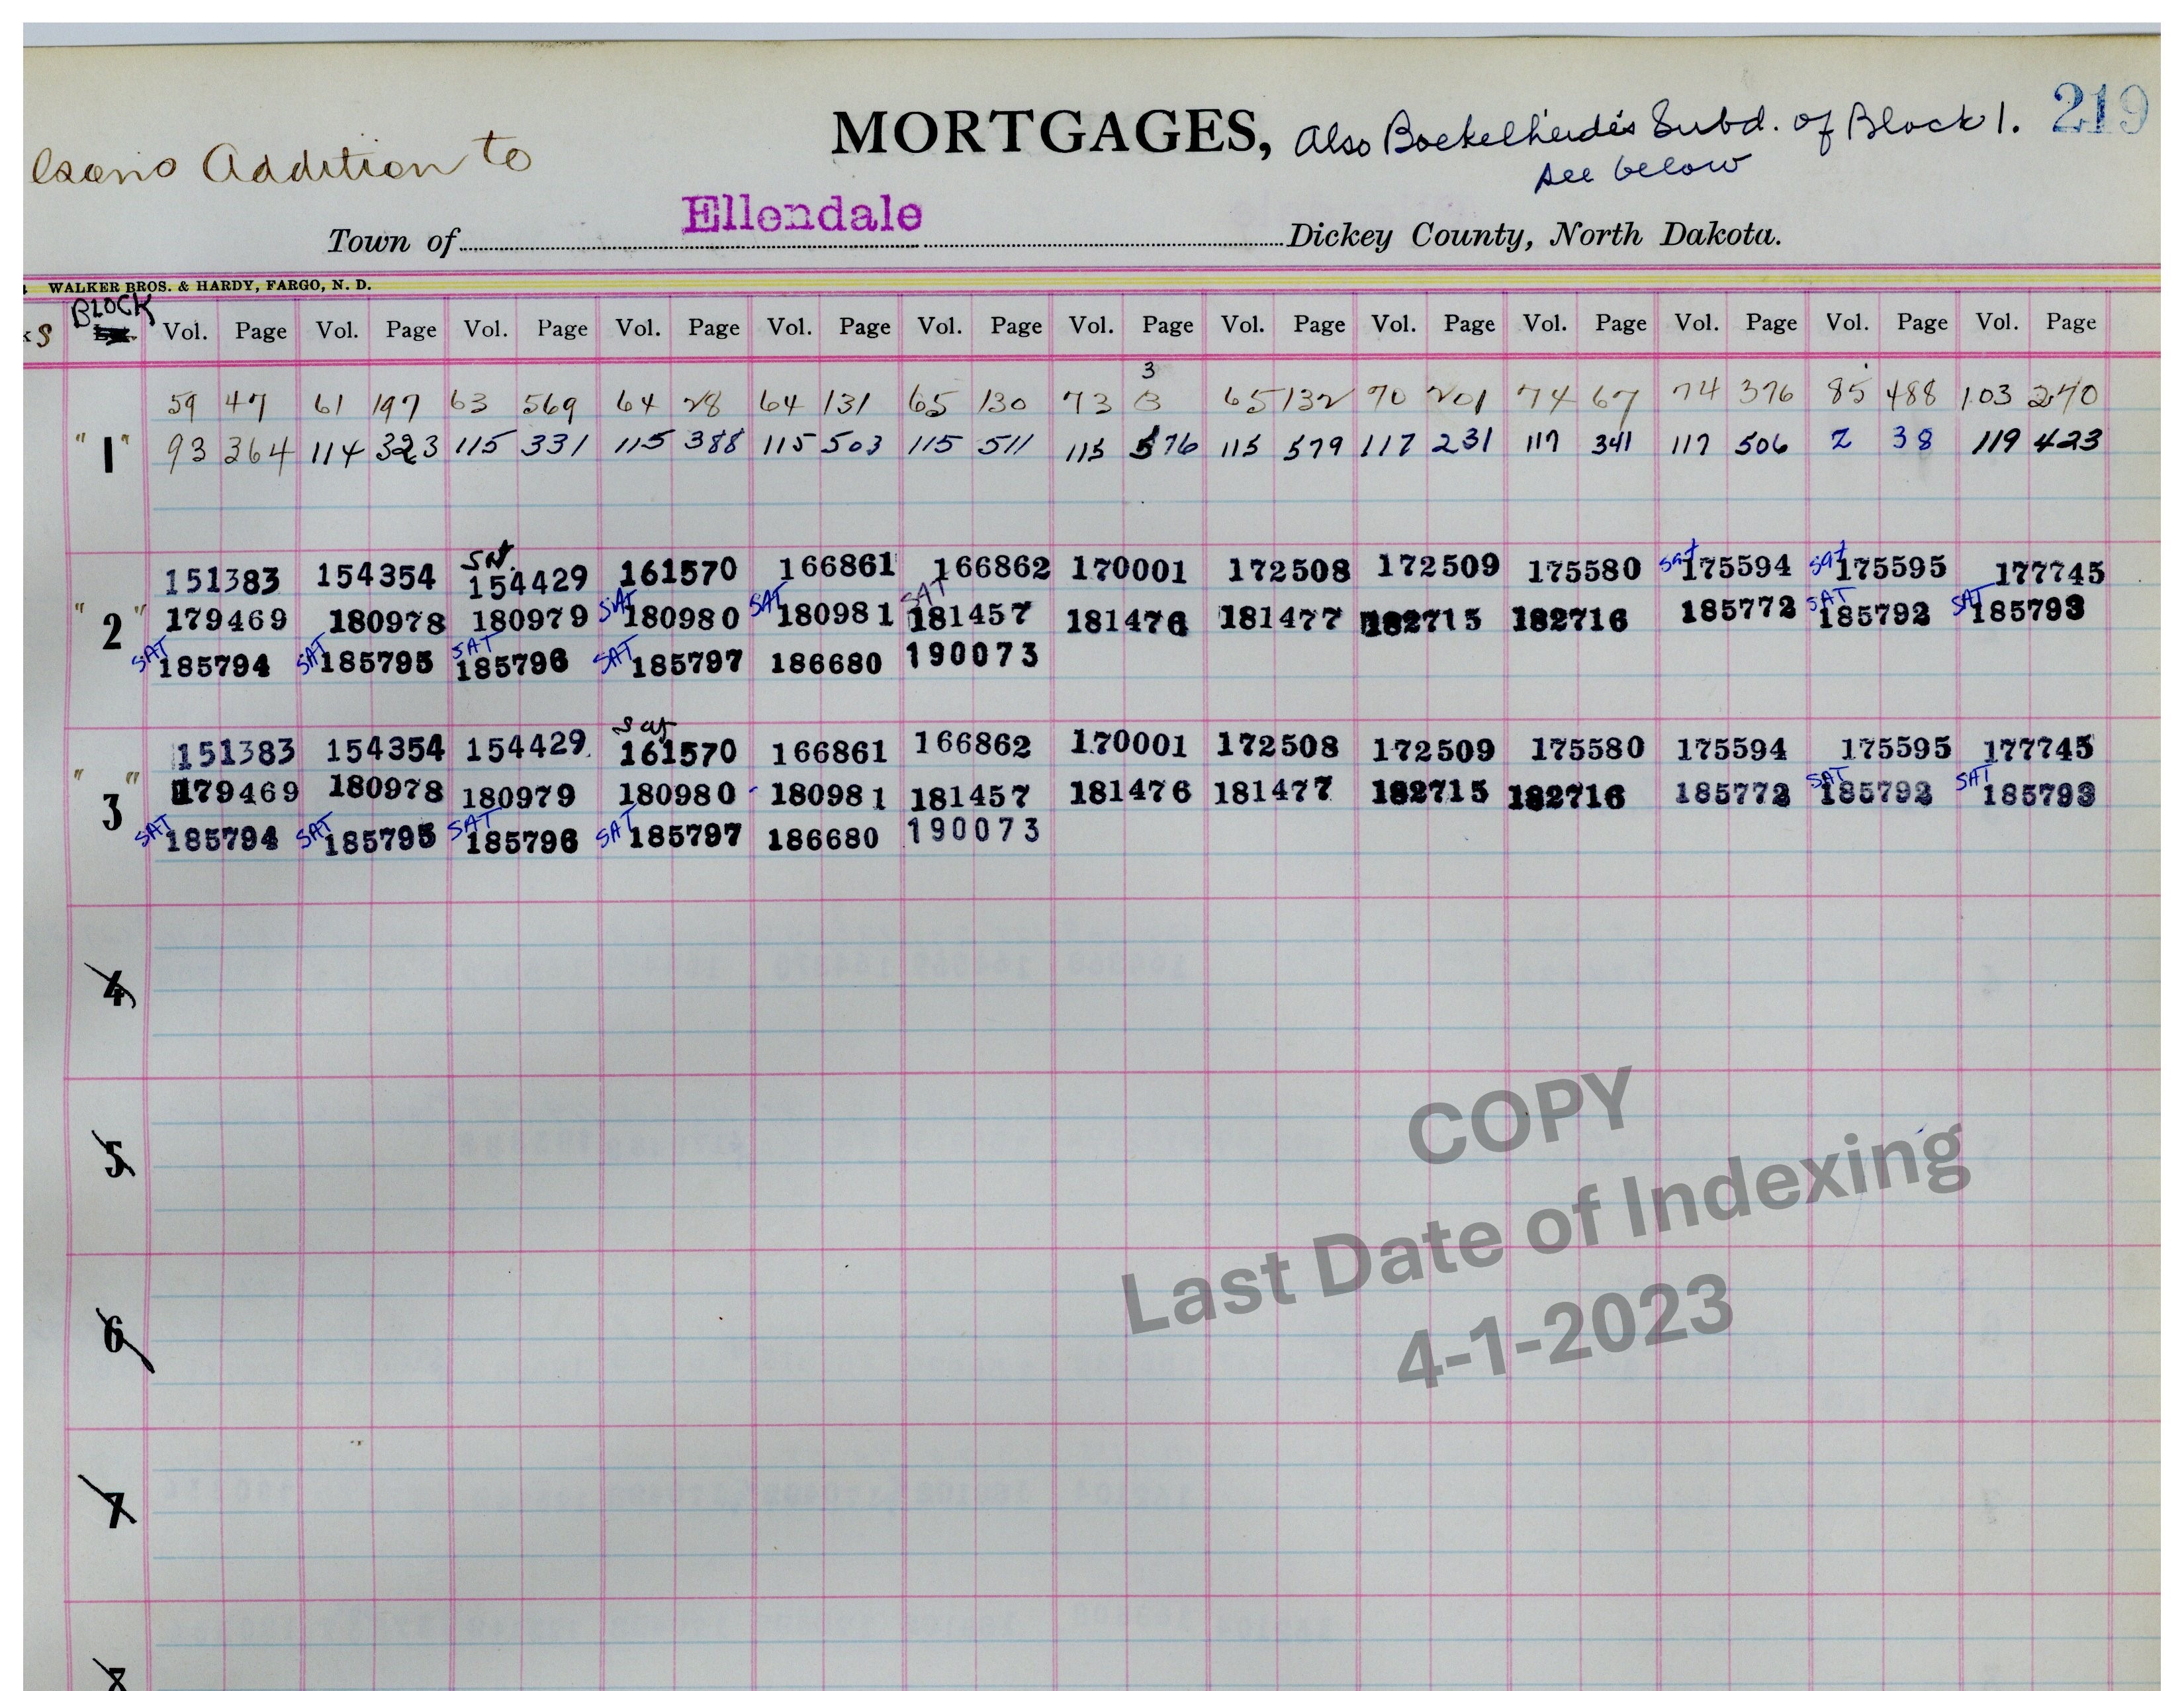 MORTGAGES, Also Boekelheide's Subd. of Block 1. 219
Addition to
See below
Ellendale
Town of Dickey County, North Dakota.
WALKER BROS. & HARDY, FARGO, N. D.
BLOCK
S Vol. Page Vol. Page Vol. Page Vol. Page Vol. Page Vol. Page Vol. Page Vol. Page Vol. Page Vol. Page Vol. Page Vol. Page Vol. Page
3
59 47 61 197 63 569 64 28 64 131 65 130 73 3 65 132 70 201 74 67 74 376 85 488 103 270
" 1 " 93 364 114 323 115 331 115 388 115 503 115 511 115 576 115 579 117 231 117 341 117 506 Z 38 119 423
151383 154354 Sat. 154429 161570 166861 166862 170001 172508 172509 175580 Sat 175594 Sat 175595 177745
" 2 " 179469 180978 180979 SAT 180980 SAT 180981 SAT 181457 181476 181477 182715 182716 185772 SAT 185792 SAT 185793
SAT 185794 SAT 185795 SAT 185796 SAT 185797 186680 190073
151383 154354 154429 Sat 161570 166861 166862 170001 172508 172509 175580 175594 175595 177745
" 3 " 179469 180978 180979 180980 180981 181457 181476 181477 182715 182716 185772 SAT 185792 SAT 185793
SAT 185794 SAT 185795 SAT 185796 SAT 185797 186680 190073
4
5
6
7
8
COPY
Last Date of Indexing
4-1-2023